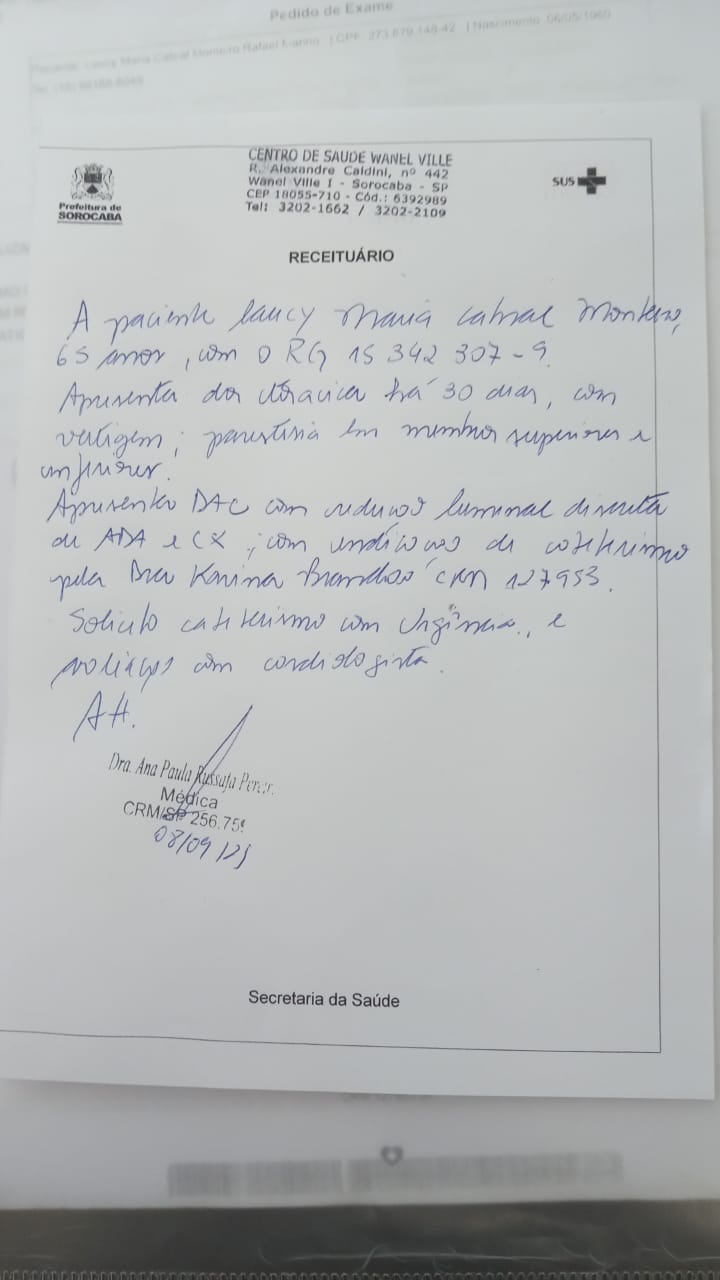 Pedido de Exame
CPF: 273.879.148-42 | Nascimento: 06/05/1960
Prefeitura de
SOROCABA
CENTRO DE SAUDE WANEL VILLE
R. Alexandre Caldini, nº 442
Wanel Ville I - Sorocaba - SP
CEP 18055-710 - Cód.: 6392989
Tel: 3202-1662 / 3202-2109
SUS
RECEITUÁRIO
A paciente Laucy Maria Cabral Monteiro,
65 anos, com o RG 15 342 307-9.
Apresenta dor torácica há 30 dias, com
vertigem; parestesia em membros superiores e
inferiores.
Apresenta DAC com redução luminal discreta
de ADA e CX, com indicação de cateterismo
pela Dra Karina Brandão CRM 127953.
Solicito cateterismo com Urgência, e
avaliação com cardiologista.
Att.
Dra. Ana Paula Russafa
Médica
CRM/SP 256.75
08/09/25
Secretaria da Saúde